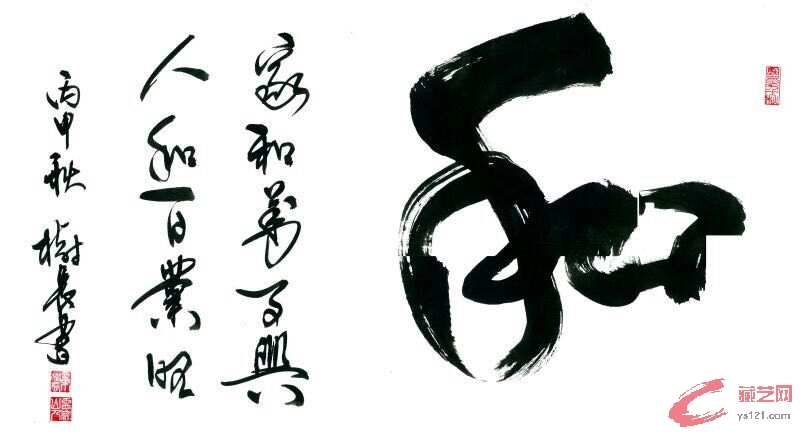 和
家和万事興
人和百業旺
丙申秋 樹長書
藏艺网
ys121.com